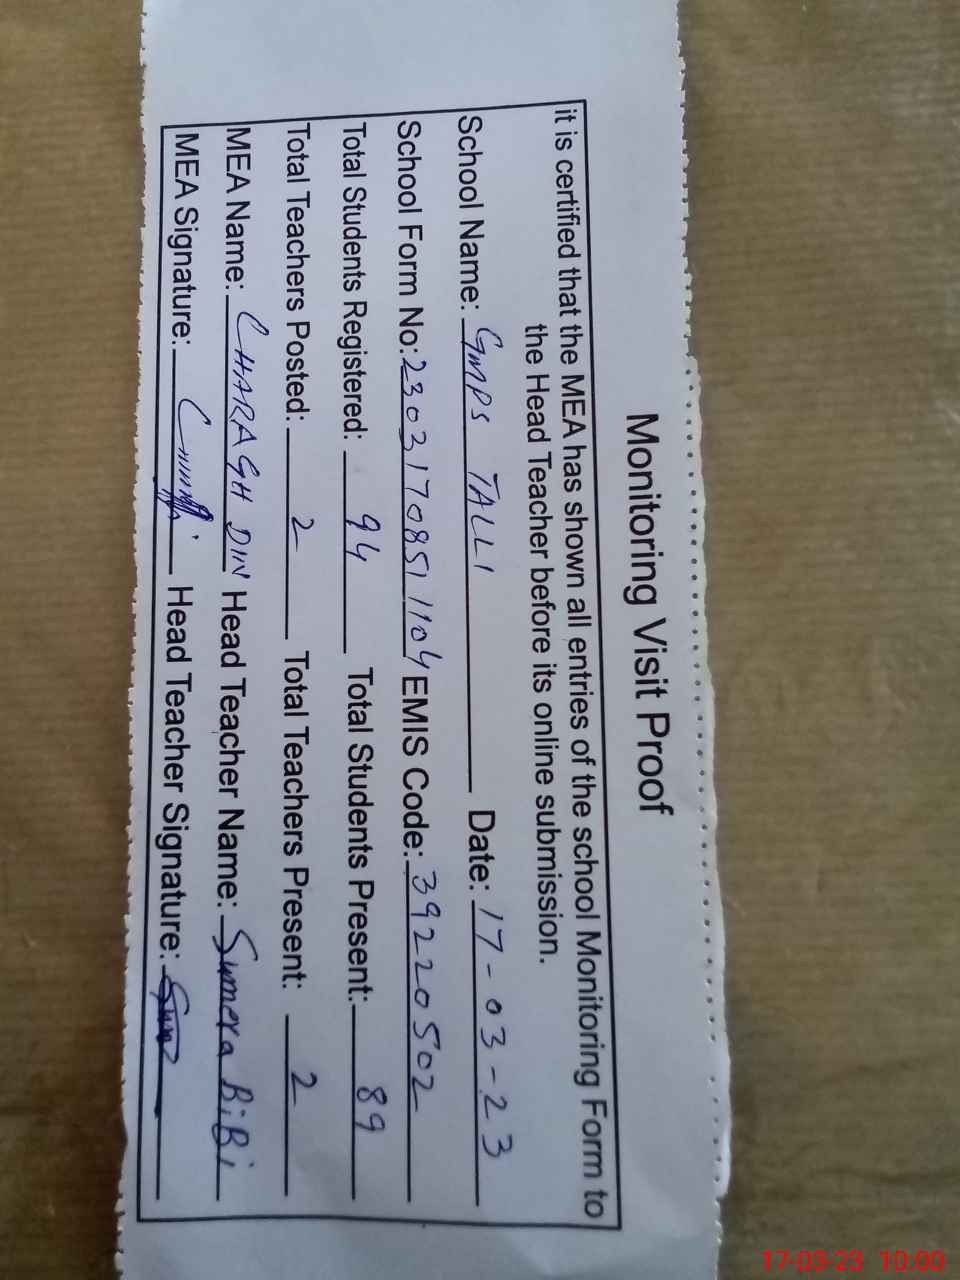 Monitoring Visit Proof
it is certified that the MEA has shown all entries of the school Monitoring Form to
the Head Teacher before its online submission.
School Name: GMPS TALLI Date: 17-03-23
School Form No: 23031708511104 EMIS Code: 39220502
Total Students Registered: 94 Total Students Present: 89
Total Teachers Posted: 2 Total Teachers Present: 2
MEA Name: CHARAGH DIN Head Teacher Name: Sumera BiBi
MEA Signature: Head Teacher Signature:
17-03-23 10:00